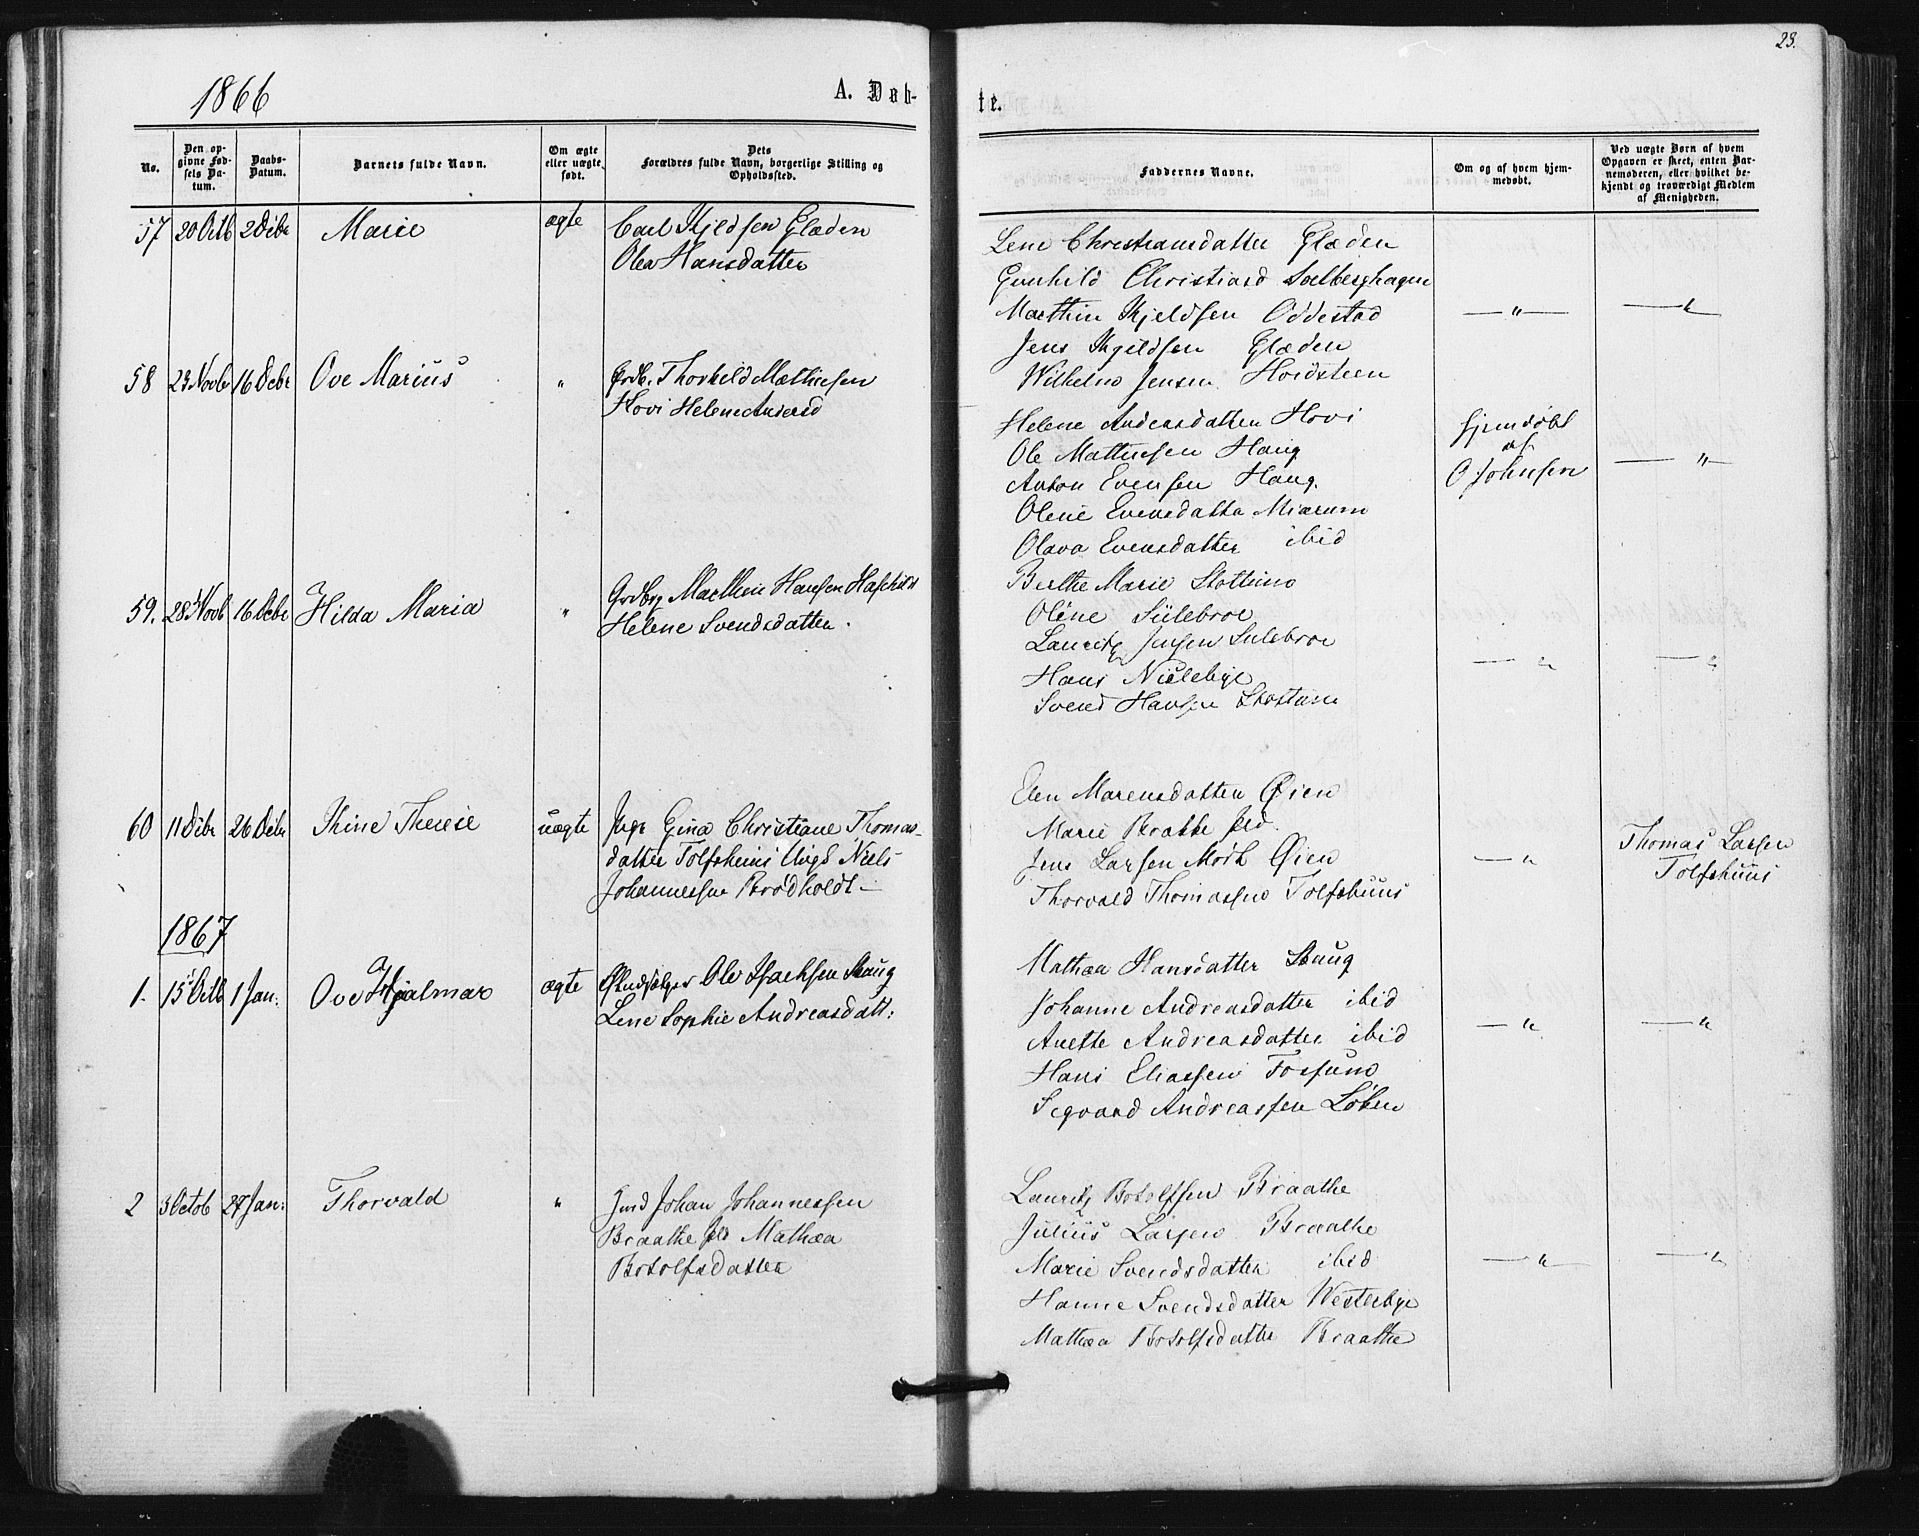 23.
1866
A. Døb-
te.
No.
Den op-
givne Fød-
sels Da-
tum.
Daabs-
Datum.
Barnets fulde Navn.
Om ægte
eller uægte
født.
Dets
Forældres fulde Navn, borgerlige Stilling og
Opholdssted.
Faddernes Navne.
Om og af hvem hjem-
medøbt.
Ved uægte Børn af hvem
Opgaven er skeet, enten Bar-
nemoderen, eller hvilket be-
kjendt og troværdigt Medlem
af Menigheden.
57 20 Octb 2 Debr Marie ægte Carl Kjeldsen Glæden
Olea Hansdatter
Lene Christiansdatter Glæden
Gunhild Christiansd
Marthin Kjeldsen Oddestad — " — — "
Jens Kjeldsen Glæden
Wilhelm Jensen
58 23 Novbr 16 Debr Ove Marius " Thorkeld Mathiesen
Hovi Helene Andersd
Helene Andersdatter Hovi
Ole Mathiesen Haug
Anton Evensen Haug
Olene Evensdatter Miarum
Olava Evensdatter ibid
hjemdøbt
af
O Johnsen — " —
59. 28 Novb 16 Debr Hilda Maria " Marthin Hansen
Helene Svendsdatter.
Berthe Marie
Oline Sulebroe
Lauritz Jensen Sulebroe
Hans — " — "
Svend Hansen
60 11 Debr 26 Debr Thine Therese uægte Pige Gina Christiane Thomas-
datter Ungk Niels
Johannessen Brødholdt —
Elen Marensdatter Øien
Marie Brathe
Jens Larsen Mørk Øien — "
Thorvald Thomassen Tolfshuus
Thomas Larsen
Tolfshuus
1867
1. 15 Octb 1 Jan: Ove Hjalmar ægte Ole Isachsen Skaug
Lene Sophie Andreasdatt:
Mathea Hansdatter Skaug
Johanne Andreasdatter ibid
Anette Andreasdatter ibid — " — "
Hans Eliassen Fossum
Segvard Andreassen Løken
2 3 Octob 27 Jan: Thorvald " Johan Johannessen
Braathe Mathea
Botolfsdatter
Lauritz Botolfsen Braathe
Julius Larsen Braathe
Marie Svendsdatter ibid — " — — "
Hanne Svendsdatter Westerbye
Mathea Botolfsdatter Braathe